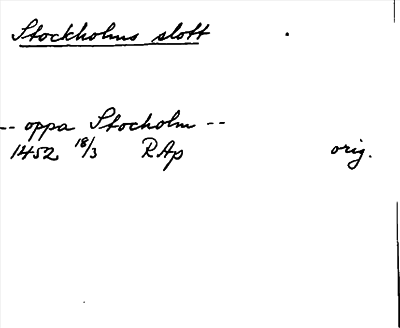 Stockholms slott
-- oppa Stocholm --
1452 18/3 RAp orig.